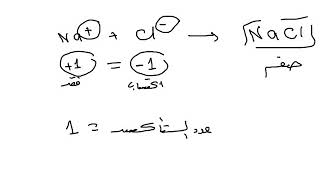 Na⁺ + Cl⁻ → NaCl
+1 = -1 صفر
فقد اكتساب
عدد التأكسد = 1